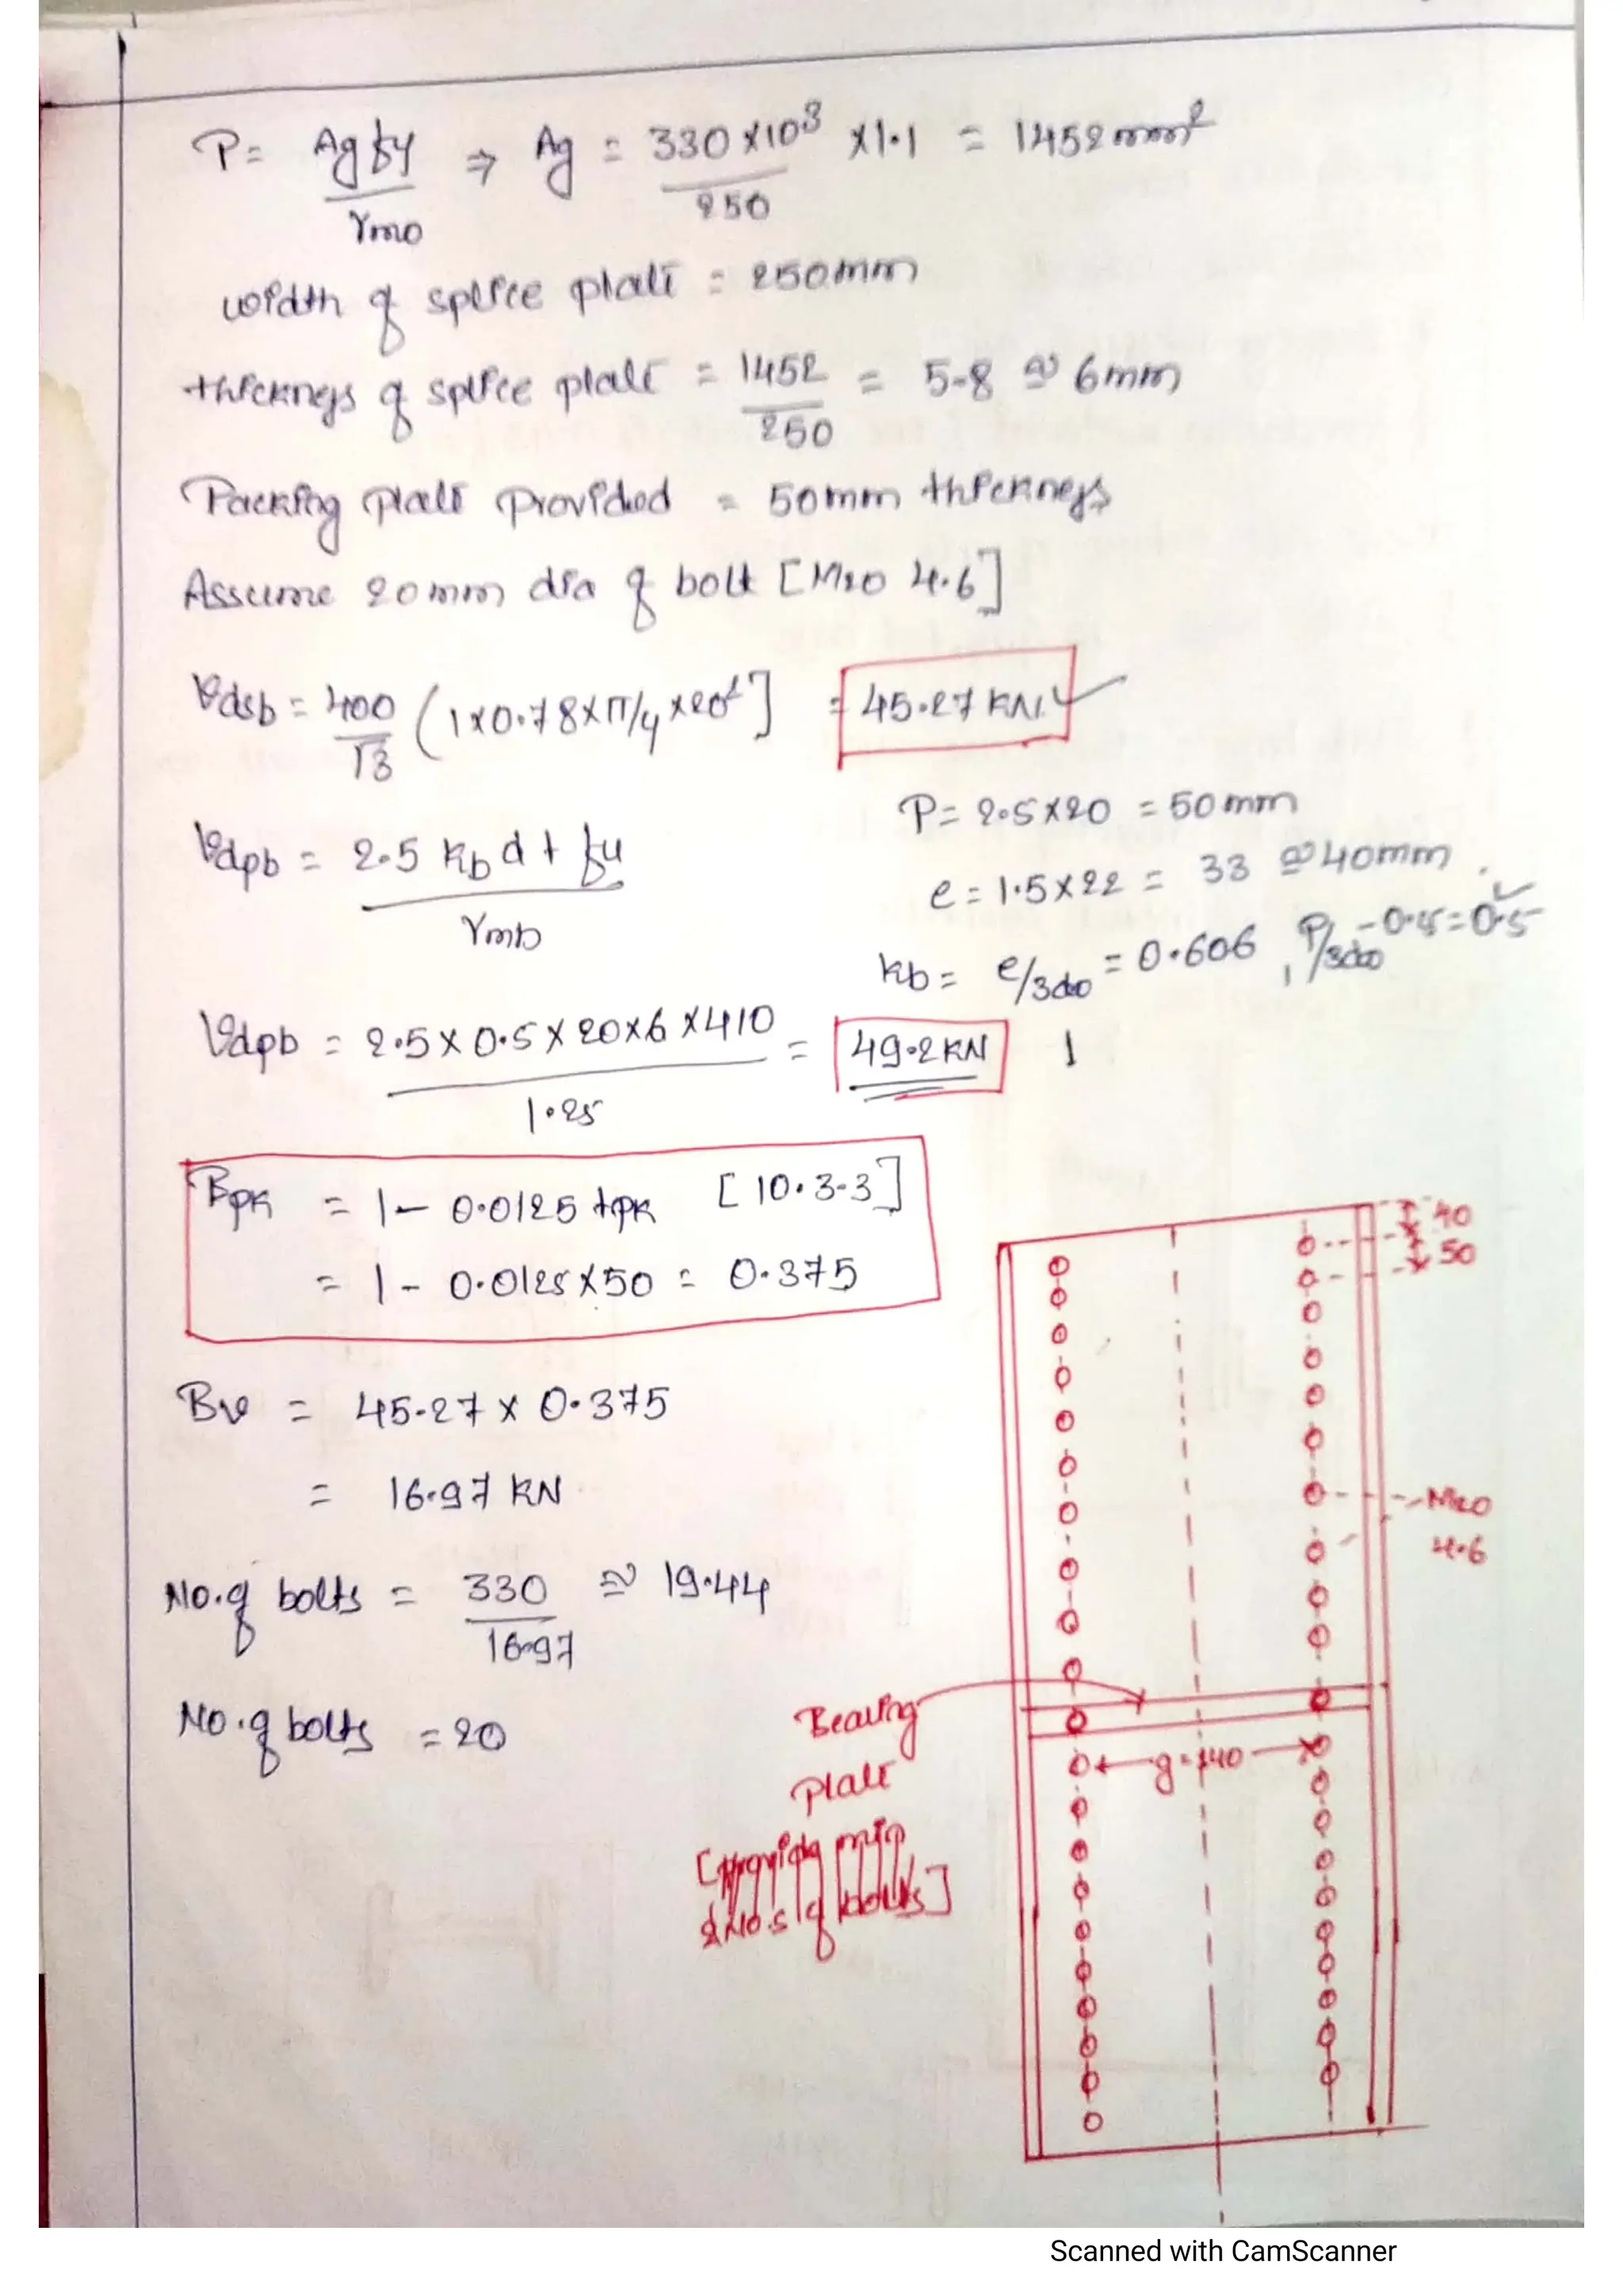 P = Ag fy / γmo ⇒ Ag = 330 × 10³ / 250 × 1.1 = 1452 mm²
width of splice plate = 250mm
thickness of splice plate = 1452 / 250 = 5.8 ≅ 6mm
Packing plate provided = 50mm thickness
Assume 20mm dia of bolt [M20 4.6]
Vdsb = 400 / √3 ( 1×0.78×π/4×20² ] = 45.27 KN ✓
P = 2.5×20 = 50mm
Vdpb = 2.5 kb d t fu / γmb
e = 1.5×22 = 33 ≅ 40mm
kb = e/3do = 0.606 , P/3do - 0.25 = 0.5
Vdpb = 2.5 × 0.5 × 20×6 ×410 / 1.25 = 49.2KN 1
Bpk = 1 - 0.0125 tpk [10.3.3]
= 1 - 0.0125×50 = 0.375
Bv = 45.27 × 0.375
= 16.97 KN
No. of bolts = 330 / 16.97 ≅ 19.44
No. of bolts = 20
40
50
M20
4.6
Bearing
plate
g = 140
[provide min
2 No.s of bolts]
Scanned with CamScanner